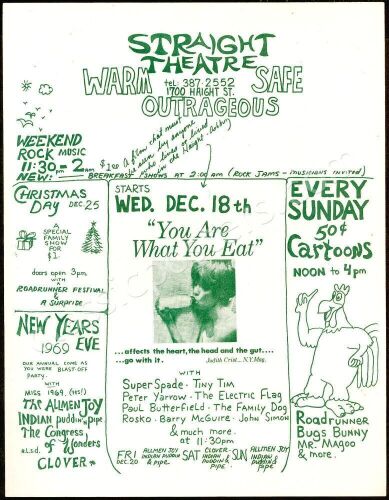 STRAIGHT
THEATRE
WARM
tel: 387-2552
1700 HAIGHT ST.
SAFE
OUTRAGEOUS
WEEKEND
ROCK MUSIC
11:30 PM - 2 AM
see A film that must
be seen by anyone
who has lived or lives
in the Haight Ashbury
NEW: BREAKFAST SHOWS AT 2:00 AM (ROCK JAMS - MUSICIANS INVITED)
CHRISTMAS
DAY DEC 25
SPECIAL
FAMILY
SHOW
FOR
$1
doors open 3pm
WITH
ROADRUNNER FESTIVAL
& A SURPRISE
NEW YEARS
1969 EVE
OUR ANNUAL COME AS
YOU WERE BLAST-OFF
PARTY.
WITH
MISS 1969, (HS!)
The ALLMEN JOY
INDIAN puddin'n pipe
The Congress
of Wonders
a.l.s.d.
CLOVER
STARTS
WED. DEC. 18th
"You Are
What You Eat"
...affects the heart, the head and the gut....
...go with it.
Judith Crist... N.Y. Mag.
WITH
SUPER SPADE - TINY TIM
PETER YARROW - THE ELECTRIC FLAG
PAUL BUTTERFIELD - THE FAMILY DOG
ROSKO - BARRY McGUIRE - JOHN SIMON
& much more
at 11:30pm
FRI DEC 20 ALLMEN JOY INDIAN PUDDIN & pipe
SAT CLOVER INDIAN PUDDIN & pipe
SUN ALLMEN JOY INDIAN PUDDIN & pipe
EVERY
SUNDAY
50¢
Cartoons
NOON to 4pm
Roadrunner
Bugs Bunny
MR. MAGOO
& more.